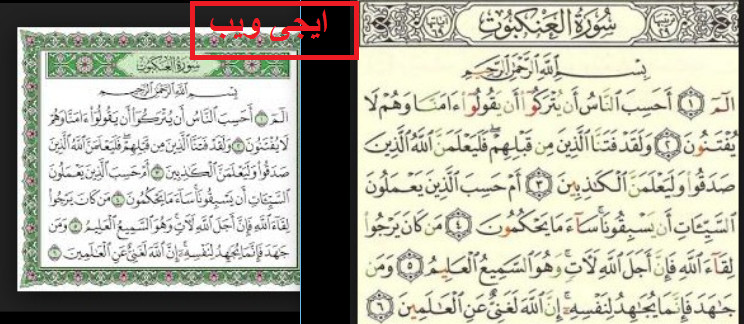 ايجى ويب
سورة العنكبوت
بِسْمِ اللَّهِ الرَّحْمَٰنِ الرَّحِيمِ
الٓمٓ ١ أَحَسِبَ النَّاسُ أَن يُتْرَكُوٓا۟ أَن يَقُولُوٓا۟ ءَامَنَّا وَهُمْ
لَا يُفْتَنُونَ ٢ وَلَقَدْ فَتَنَّا الَّذِينَ مِن قَبْلِهِمْ ۖ فَلَيَعْلَمَنَّ اللَّهُ الَّذِينَ
صَدَقُوا۟ وَلَيَعْلَمَنَّ الْكَٰذِبِينَ ٣ أَمْ حَسِبَ الَّذِينَ يَعْمَلُونَ
السَّيِّـَٔاتِ أَن يَسْبِقُونَا ۚ سَآءَ مَا يَحْكُمُونَ ٤ مَن كَانَ يَرْجُوا۟
لِقَآءَ اللَّهِ فَإِنَّ أَجَلَ اللَّهِ لَـَٔاتٍ ۚ وَهُوَ السَّمِيعُ الْعَلِيمُ ٥ وَمَن
جَٰهَدَ فَإِنَّمَا يُجَٰهِدُ لِنَفْسِهِۦٓ ۚ إِنَّ اللَّهَ لَغَنِىٌّ عَنِ الْعَٰلَمِينَ ٦
سُورَةُ الْعَنكَبُوتِ
بِسْمِ اللَّهِ الرَّحْمَٰنِ الرَّحِيمِ
الٓمٓ ١ أَحَسِبَ النَّاسُ أَن يُتْرَكُوٓا۟ أَن يَقُولُوٓا۟ ءَامَنَّا وَهُمْ لَا
يُفْتَنُونَ ٢ وَلَقَدْ فَتَنَّا الَّذِينَ مِن قَبْلِهِمْ ۖ فَلَيَعْلَمَنَّ اللَّهُ الَّذِينَ
صَدَقُوا۟ وَلَيَعْلَمَنَّ الْكَٰذِبِينَ ٣ أَمْ حَسِبَ الَّذِينَ يَعْمَلُونَ
السَّيِّـَٔاتِ أَن يَسْبِقُونَا ۚ سَآءَ مَا يَحْكُمُونَ ٤ مَن كَانَ يَرْجُوا۟
لِقَآءَ اللَّهِ فَإِنَّ أَجَلَ اللَّهِ لَـَٔاتٍ ۚ وَهُوَ السَّمِيعُ الْعَلِيمُ ٥ وَمَن
جَٰهَدَ فَإِنَّمَا يُجَٰهِدُ لِنَفْسِهِۦٓ ۚ إِنَّ اللَّهَ لَغَنِىٌّ عَنِ الْعَٰلَمِينَ ٦